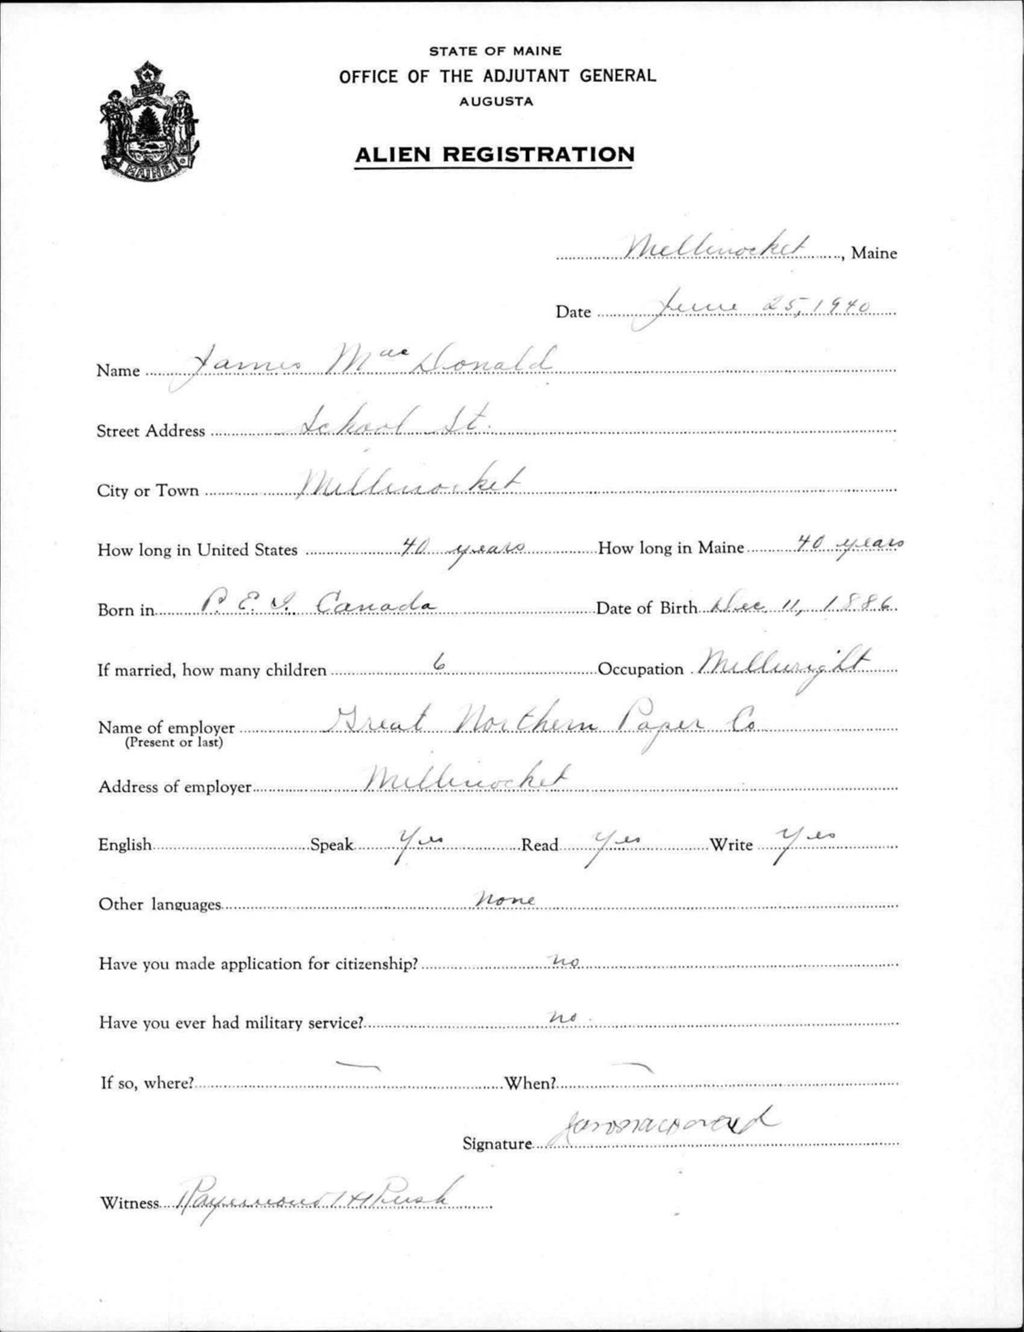 STATE OF MAINE
OFFICE OF THE ADJUTANT GENERAL
AUGUSTA
ALIEN REGISTRATION
MAINE
Millinocket, Maine
Date June 25, 1940
Name James MacDonald
Street Address School St.
City or Town Millinocket
How long in United States 40 years How long in Maine 40 years
Born in P. E. I. Canada Date of Birth Dec. 11, 1886
If married, how many children 6 Occupation Millwright
Name of employer Great Northern Paper Co
(Present or last)
Address of employer Millinocket
English Speak Yes Read Yes Write Yes
Other languages none
Have you made application for citizenship? no
Have you ever had military service? no.
If so, where? — When? —
Signature
Witness Raymond H Rush